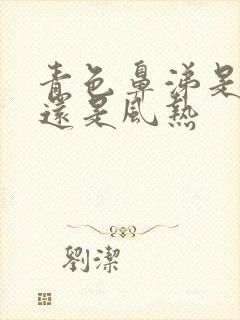 青色鼻涕是
還是風熱
劉潔